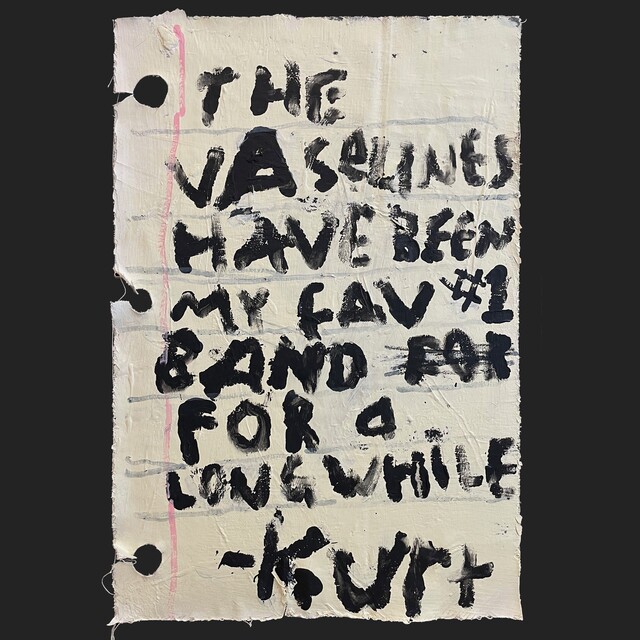 THE
VASELINES
HAVE BEEN
MY FAV #1
BAND FOR
FOR A
LONG WHILE
-KURT